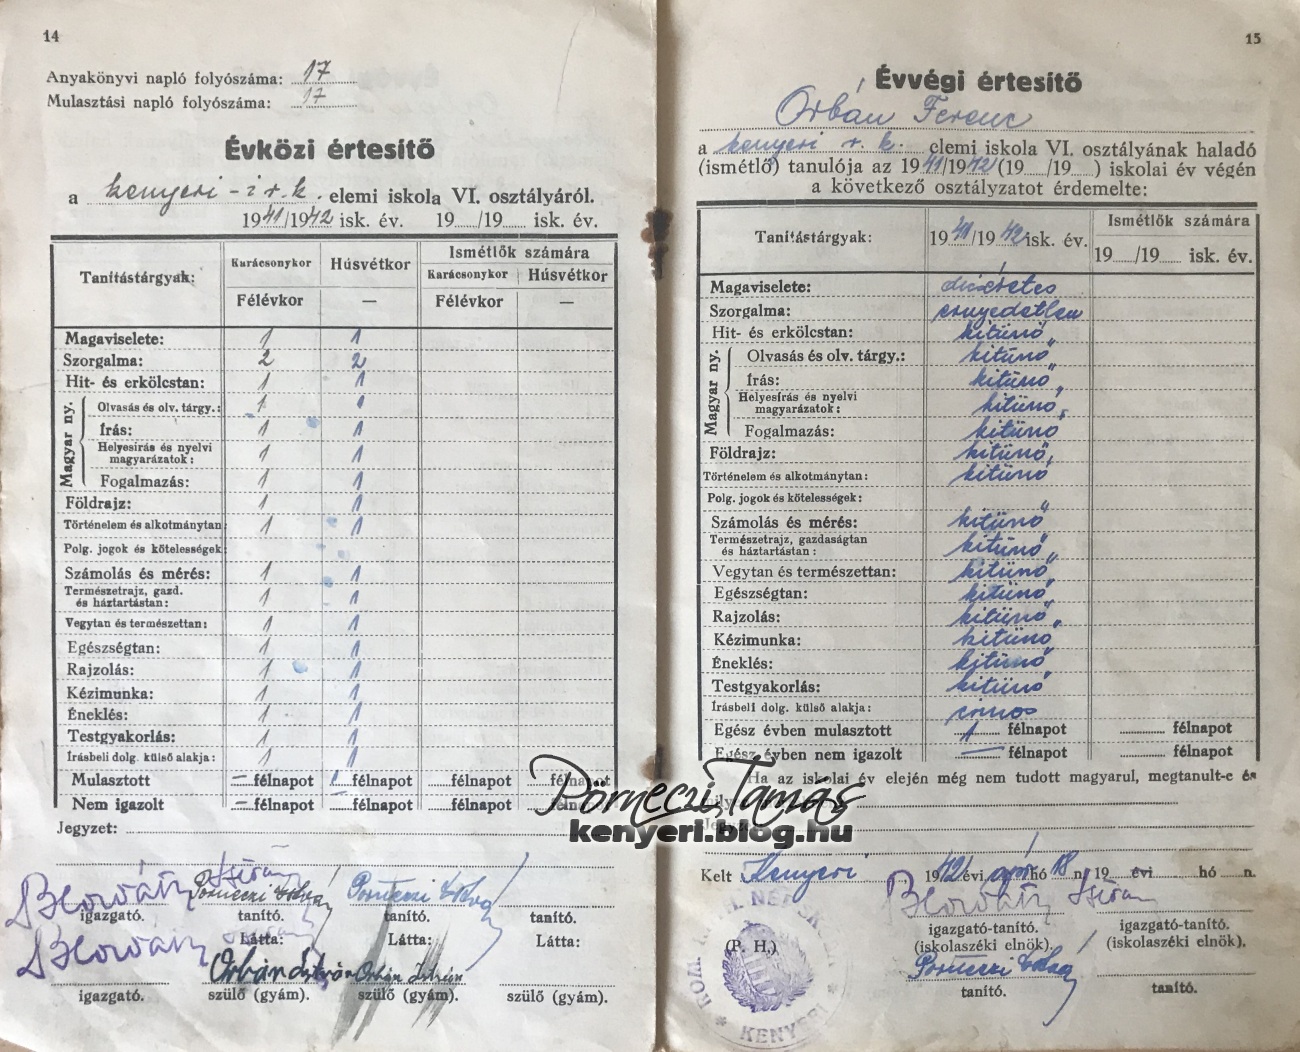 14
Anyakönyvi napló folyószáma: 17
Mulasztási napló folyószáma: 17
Évközi értesítő
a kenyeri - i r. k. elemi iskola VI. osztályáról.
1941/1942 isk. év. 19...../19...... isk. év.
Tanítástárgyak:
Karácsonykor Húsvétkor Ismétlők számára
Karácsonykor Húsvétkor
Félévkor — Félévkor —
Magaviselete: 1 1
Szorgalma: 2 2
Hit- és erkölcstan: 1 1
Magyar ny.
Olvasás és olv. tárgy.: 1 1
Írás: 1 1
Helyesírás és nyelvi magyarázatok: 1 1
Fogalmazás: 1 1
Földrajz: 1 1
Történelem és alkotmánytan: 1 1
Polg. jogok és kötelességek:
Számolás és mérés: 1 1
Természetrajz, gazd. és háztartástan: 1 1
Vegytan és természettan: 1 1
Egészségtan: 1 1
Rajzolás: 1 1
Kézimunka: 1 1
Éneklés: 1 1
Testgyakorlás: 1 1
Írásbeli dolg. külső alakja: 1 1
Mulasztott — félnapot 1 félnapot ......félnapot ......félnapot
Nem igazolt — félnapot — félnapot ......félnapot ......félnapot
Jegyzet:
Horváth Pörneczi Pörneczi
igazgató. tanító. tanító. tanító.
Horváth Látta: Látta: Látta:
Orbán István Orbán István
igazgató. szülő (gyám). szülő (gyám). szülő (gyám).
15
Évvégi értesítő
Orbán Ferenc
a kenyeri r. k. elemi iskola VI. osztályának haladó
(ismétlő) tanulója az 1941/1942 (19...../19.....) iskolai év végén
a következő osztályzatot érdemelte:
Tanítástárgyak: 1941/1942 isk. év. Ismétlők számára
19...../19..... isk. év.
Magaviselete: dicséretes
Szorgalma: ernyedetlen
Hit- és erkölcstan: kitünő
Magyar ny.
Olvasás és olv. tárgy.: kitünő
Írás: kitünő
Helyesírás és nyelvi magyarázatok: kitünő
Fogalmazás: kitünő
Földrajz: kitünő
Történelem és alkotmánytan: kitünő
Polg. jogok és kötelességek:
Számolás és mérés: kitünő
Természetrajz, gazdaságtan és háztartástan: kitünő
Vegytan és természettan: kitünő
Egészségtan: kitünő
Rajzolás: kitünő
Kézimunka: kitünő
Éneklés: kitünő
Testgyakorlás: kitünő
Írásbeli dolg. külső alakja: csinos
Egész évben mulasztott 1 félnapot ............ félnapot
Egész évben nem igazolt — félnapot ............ félnapot
Ha az iskolai év elején még nem tudott magyarul, megtanult-e és
Kelt Kenyeri 1942 évi ápr hó 18 n. 19..... évi ...... hó ..... n.
Horváth
igazgató-tanító. igazgató-tanító.
(P. H.) (iskolaszéki elnök). (iskolaszéki elnök).
Pörneczi
tanító. tanító.
KENYERI
Pörneczi Tamás
kenyeri.blog.hu